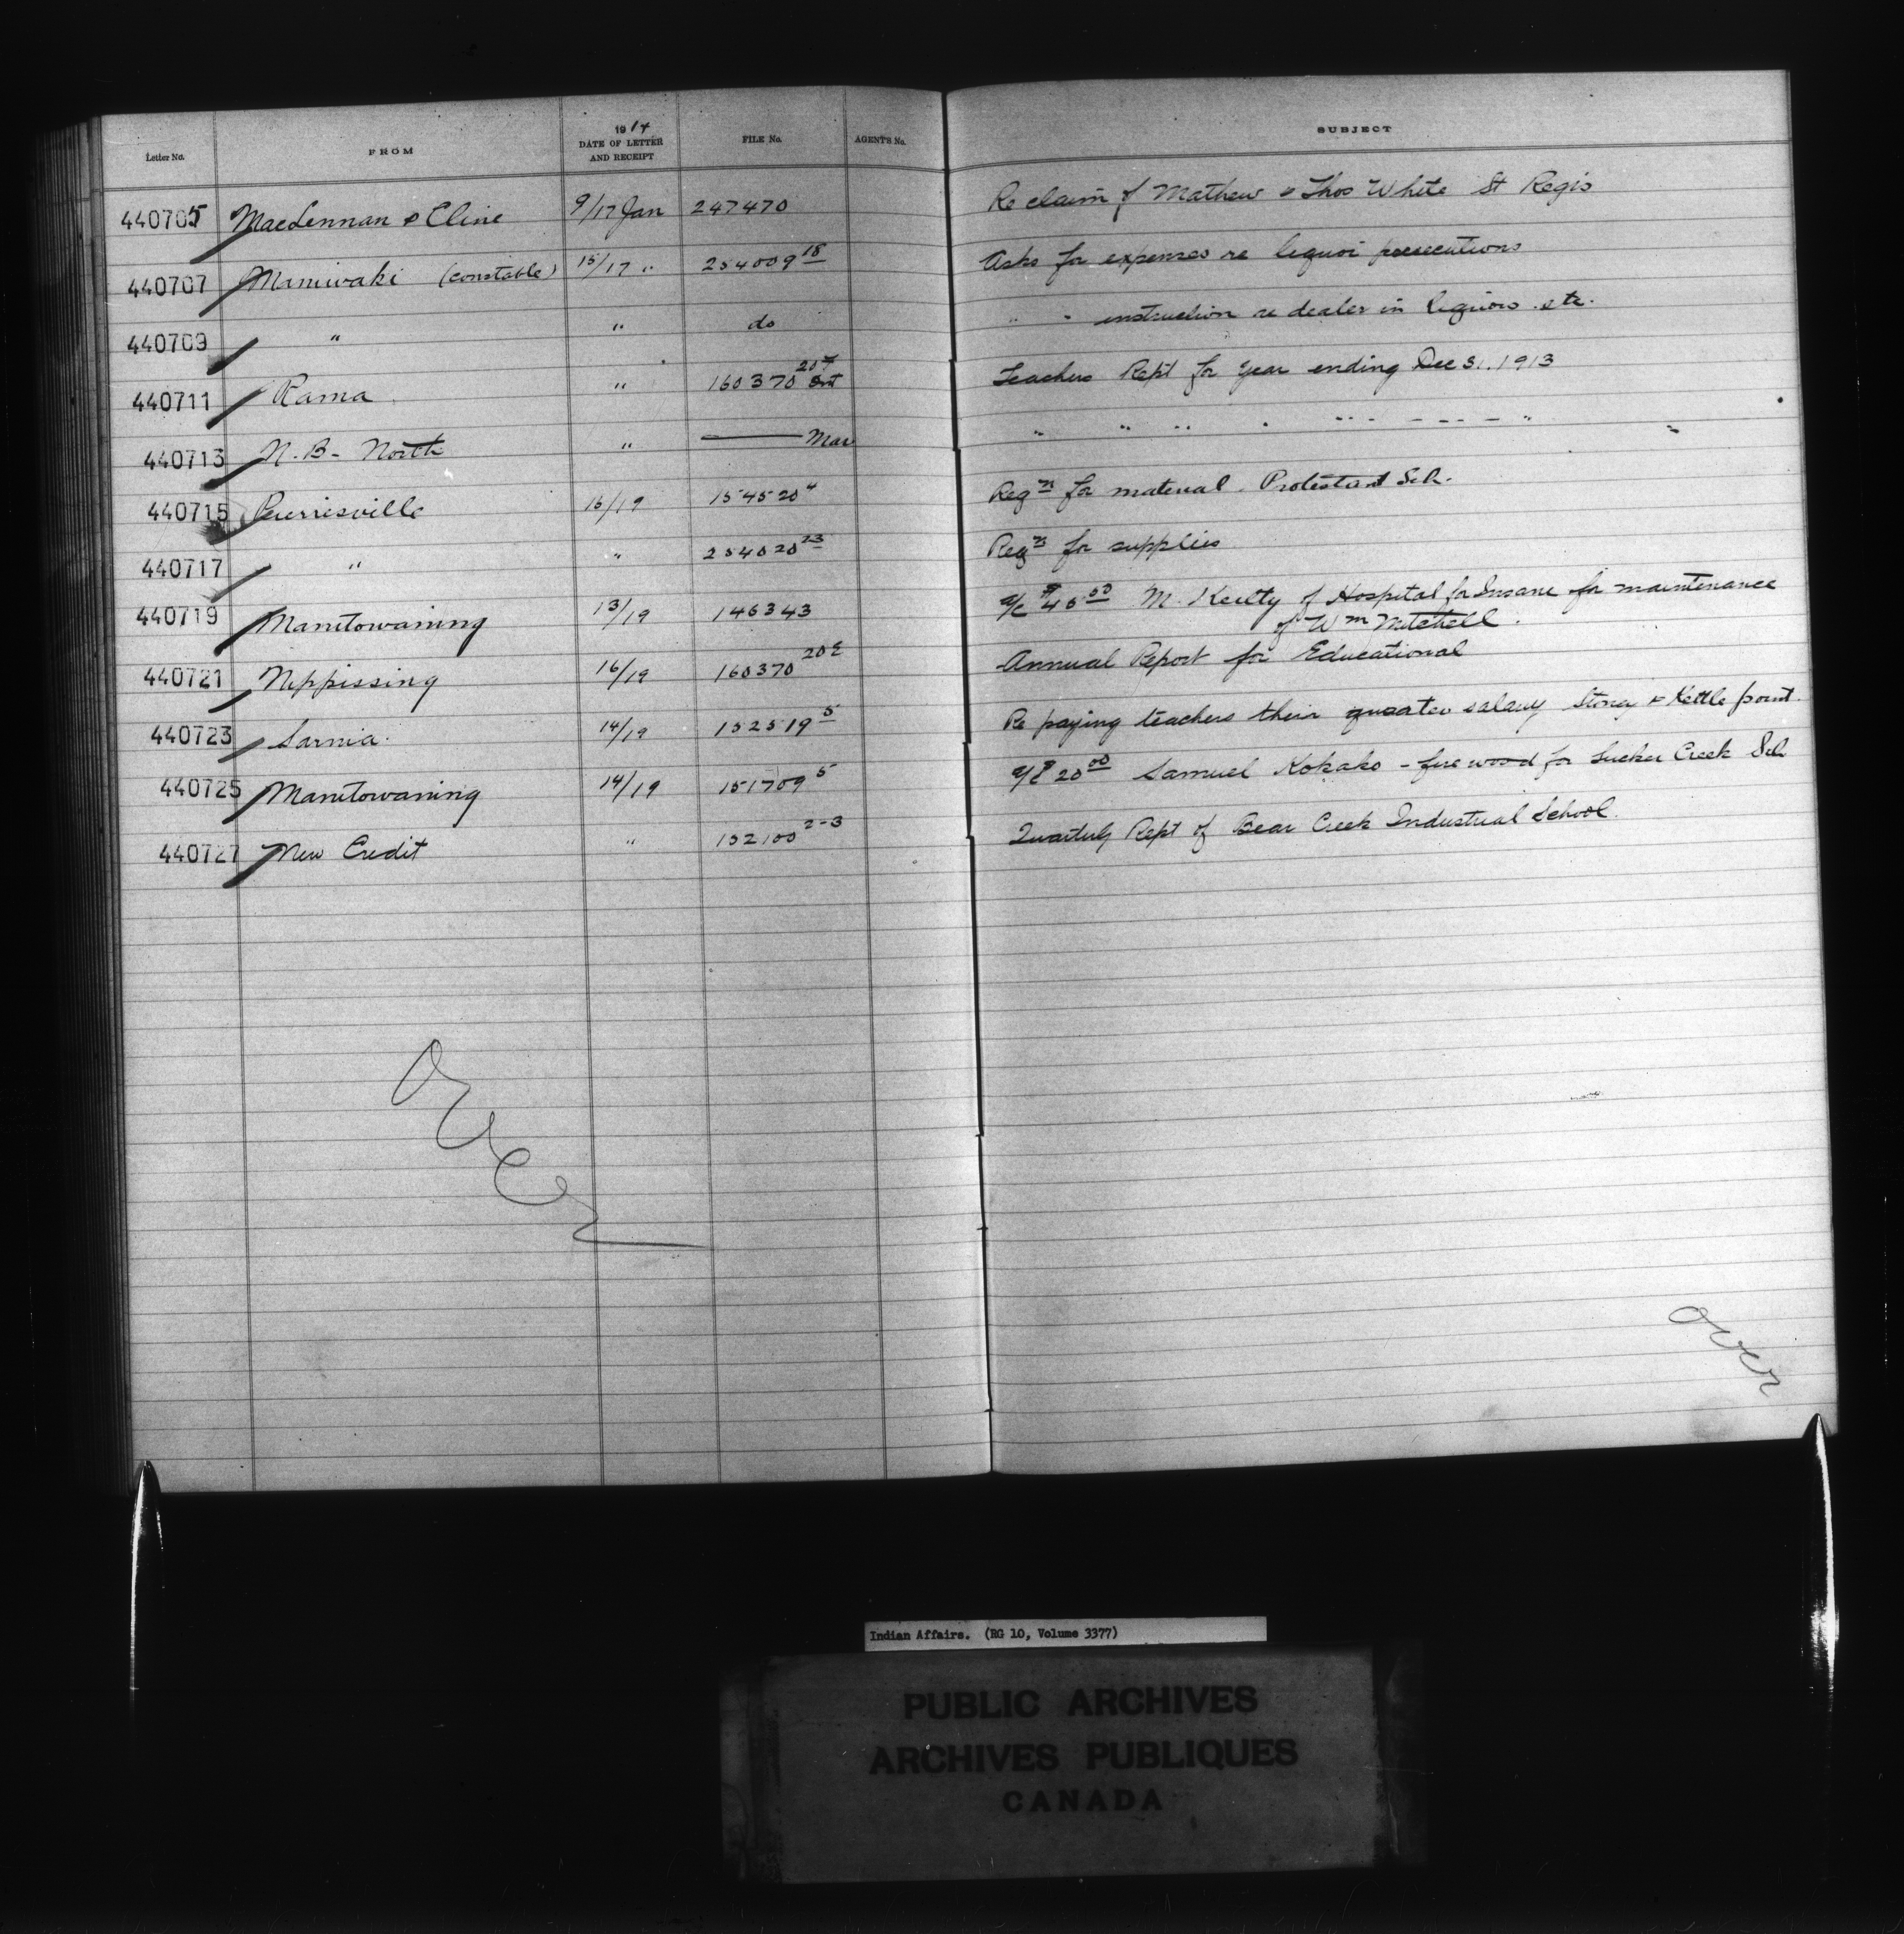 Letter No. FROM 1914 DATE OF LETTER AND RECEIPT FILE No. AGENTS No. SUBJECT
440705 MacLennan & Cline 9/17 Jan 247470 Re claim of Mathew & Thos White St Regis
440707 Maniwaki (constable) 15/17 " 254009 18 Asks for expenses re liquor prosecutions
440709 " " do " " instruction re dealer in liquors etc.
440711 Rama " 160370 Ont Teachers Rept for Year ending Dec 31. 1913
440713 N.B. North " — Mar " " " " " "
440715 16/19 154520 4 Reqn for material. Protestant Sch.
440717 " " 254020 23 Reqn for supplies
440719 Manitowaning 13/19 146343 a/c $45 50 M. of Hospital for Insane for maintenance
of Wm Mitchell.
440721 Nippissing 16/19 160370 20 E Annual Report for Educational
440723 Sarnia. 14/19 152519 5 Re paying teachers their quarter salary Stony & Kettle point.
440725 Manitowaning 14/19 151709 5 a/c $20 00 Samuel Kokako - fire wood for Sucker Creek Sch
440727 New Credit " 152100 2-3 Quarterly Rept of Bear Creek Industrial School.
Over
over
Indian Affairs. (RG 10, Volume 3377)
PUBLIC ARCHIVES
ARCHIVES PUBLIQUES
CANADA